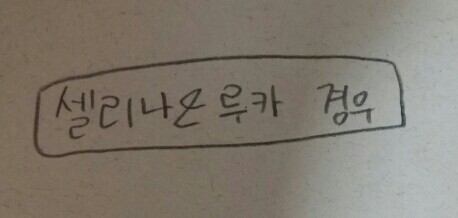 셀리나z 루카 경우